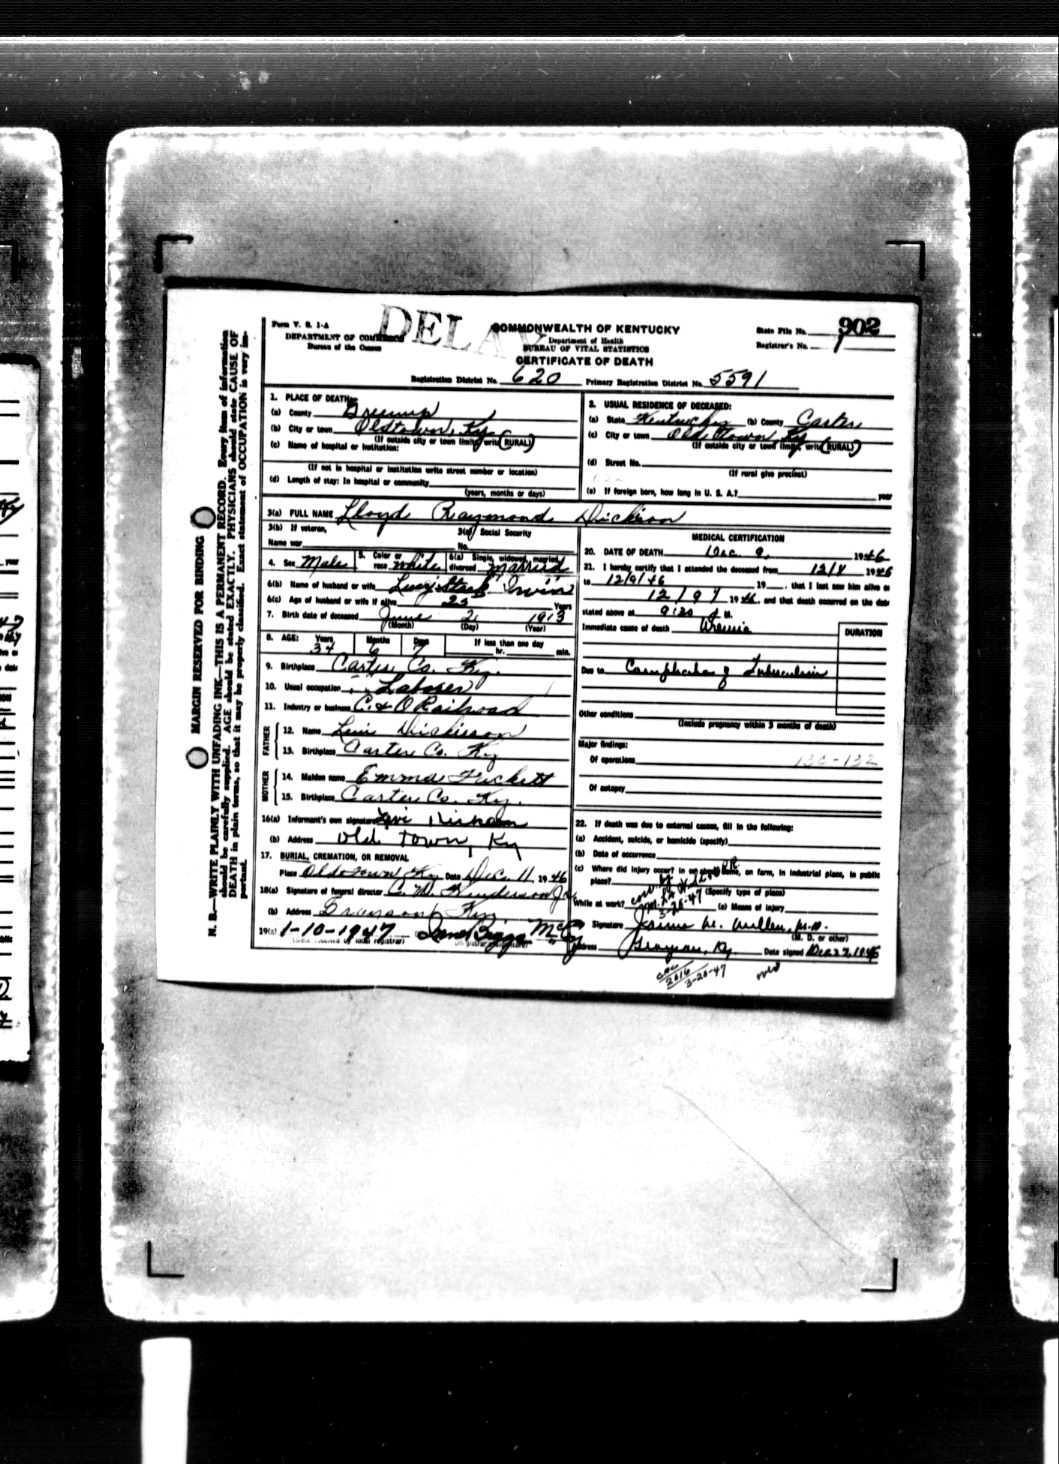 Form V. S. 1-A
DEPARTMENT OF COMMERCE
Bureau of the Census
DELA
COMMONWEALTH OF KENTUCKY
Department of Health
BUREAU OF VITAL STATISTICS
CERTIFICATE OF DEATH
State File No. 902
Registrar's No. 1
Registration District No. 620 Primary Registration District No. 5591
MARGIN RESERVED FOR BINDING
N. B.—WRITE PLAINLY WITH UNFADING INK—THIS IS A PERMANENT RECORD. Every item of information
should be carefully supplied. AGE should be stated EXACTLY. PHYSICIANS should state CAUSE OF
DEATH in plain terms, so that it may be properly classified. Exact statement of OCCUPATION is very im-
portant.
1. PLACE OF DEATH:
(a) County Greenup
(b) City or town Oldtown, Ky
(If outside city or town limits, write RURAL)
(c) Name of hospital or institution:
(If not in hospital or institution write street number or location)
(d) Length of stay: In hospital or community
(years, months or days)
2. USUAL RESIDENCE OF DECEASED:
(a) State Kentucky (b) County Carter
(c) City or town Old Town, Ky
(If outside city or town limits, write RURAL)
(d) Street No.
(If rural give precinct)
(e) If foreign born, how long in U. S. A.? year
3(a) FULL NAME Lloyd Raymond Dickison
3(b) If veteran,
Name war
3(c) Social Security
No.
4. Sex Male 5. Color or race White 6(a) Single, widowed, married, divorced Married
6(b) Name of husband or wife Lucy Irvin
6(c) Age of husband or wife if alive 25 Years
7. Birth date of deceased June 2 1913
(Month) (Day) (Year)
8. AGE: Years 34 Months 6 Days 7 If less than one day hr. min.
9. Birthplace Carter Co. Ky.
10. Usual occupation Laborer
11. Industry or business C. & O Railroad
FATHER
12. Name Dickison
13. Birthplace Carter Co. Ky
MOTHER
14. Maiden name Emma
15. Birthplace Carter Co. Ky.
16(a) Informant's own signature
(b) Address Old Town, Ky
17. BURIAL, CREMATION, OR REMOVAL
Place Oldtown, Ky Date Dec. 11, 1946
18(a) Signature of funeral director C. M. Henderson Jr.
(b) Address Grayson, Ky.
19(a) 1-10-1947
(Date received by local registrar)
MEDICAL CERTIFICATION
20. DATE OF DEATH Dec. 9, 1946
21. I hereby certify that I attended the deceased from 12/8 1946
to 12/9/46 19 , that I last saw him alive on
12/9/ 1946, and that death occurred on the date
stated above at 9:30 M.
Immediate cause of death Uremia
DURATION
Due to of Tuberculosis
Other conditions
(Include pregnancy within 3 months of death)
Major findings:
Of operations 130-132
Of autopsy
22. If death was due to external causes, fill in the following:
(a) Accident, suicide, or homicide (specify)
(b) Date of occurrence
(c) Where did injury occur? In or about home, on farm, in industrial place, in public
place?
(Specify type of place)
While at work? (e) Means of injury
3-20-47
Signature M.D.
(M. D. or other)
Address Grayson, Ky Date signed Dec 27, 1946
3-20-47